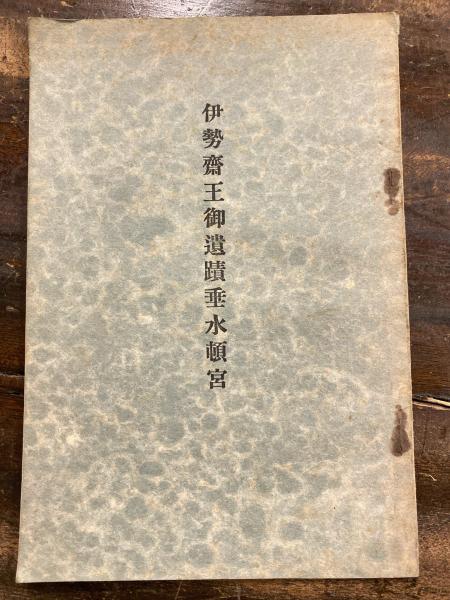 伊勢齋王御遺蹟垂水頓宮